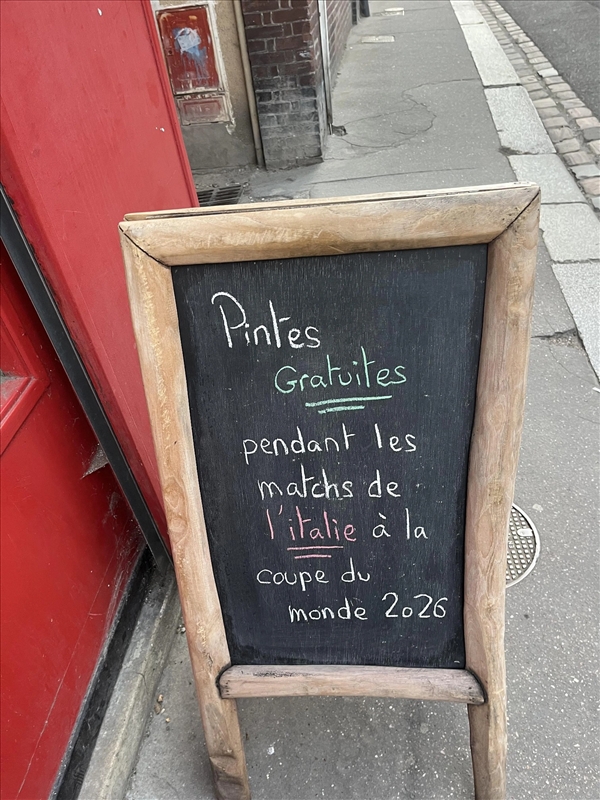 Pintes
Gratuites
pendant les
matchs de
l'italie à la
coupe du
monde 2026